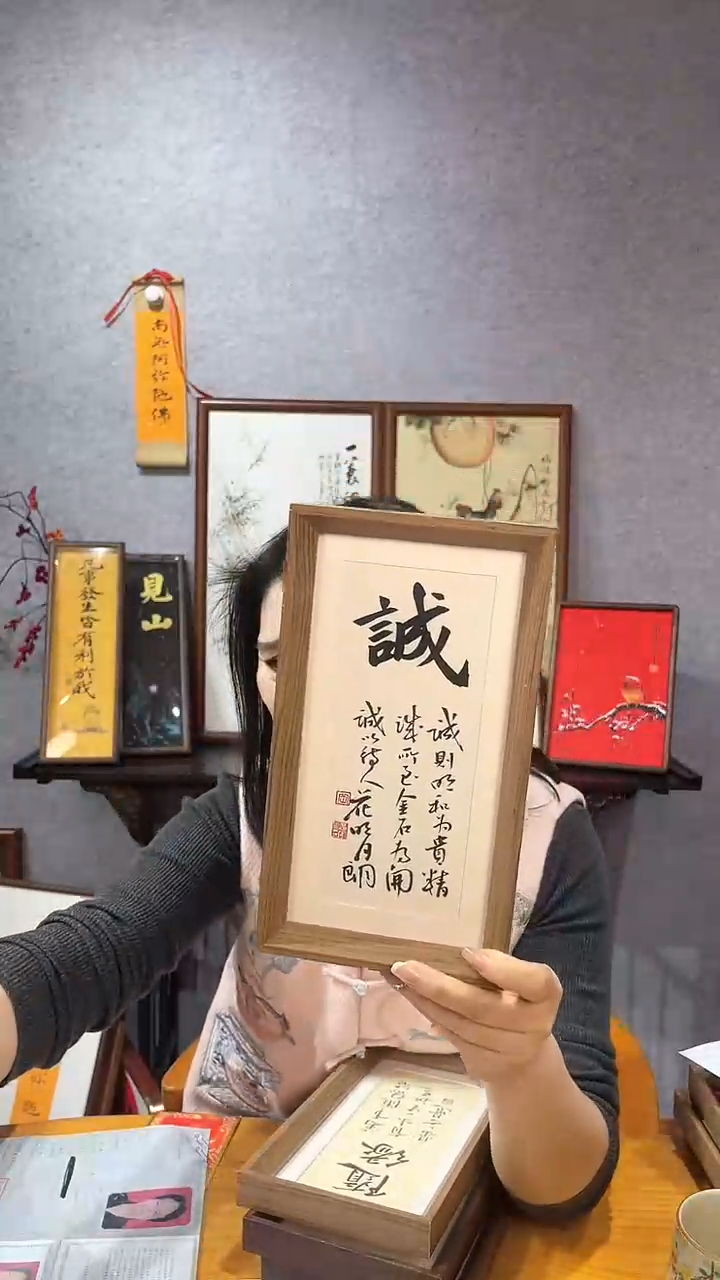 南無阿彌陀佛
凡事發生皆有利於我
見山
誠
誠則明和为貴精
誠所至金石為開
誠以待人花明月朗
隨緣